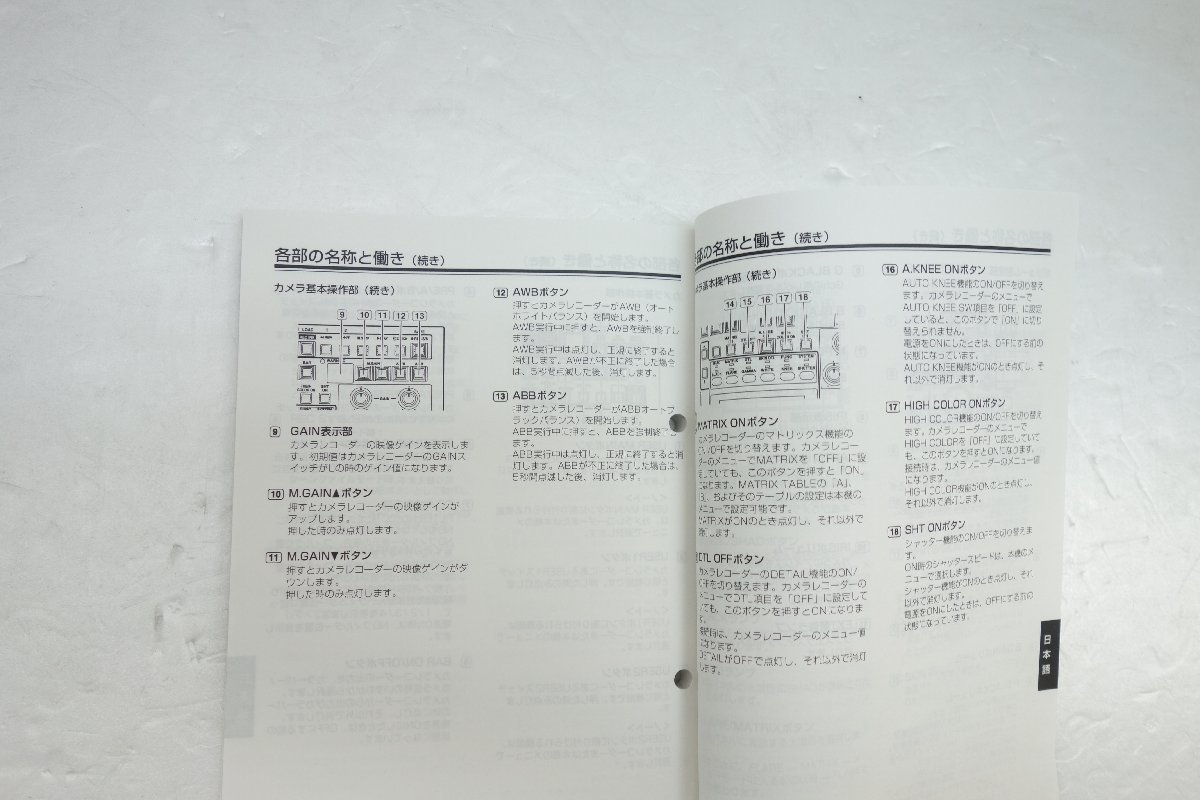 各部の名称と働き（続き）
カメラ基本操作部（続き）
9 10 11 12 13
9 GAIN表示部
カメラレコーダーの映像ゲインを表示しま
す。初期値はカメラレコーダーのGAINス
イッチがLの時のゲイン値になります。
10 M.GAIN▲ボタン
押すとカメラレコーダーの映像ゲインが
アップします。
押した時のみ点灯します。
11 M.GAIN▼ボタン
押すとカメラレコーダーの映像ゲインがダ
ウンします。
押した時のみ点灯します。
12 AWBボタン
押すとカメラレコーダーがAWB（オート
ホワイトバランス）を開始します。
AWB実行中に押すと、AWBを強制終了し
ます。
AWB実行中は点灯し、正規に終了すると
消灯します。AWBが不正に終了した場合
は、5秒間点滅した後、消灯します。
13 ABBボタン
押すとカメラレコーダーがABBオートブ
ラックバランス）を開始します。
ABB実行中に押すと、ABBを強制終了し
ます。
ABB実行中は点灯し、正規に終了すると消
灯します。ABBが不正に終了した場合は、
5秒間点滅した後、消灯します。
部の名称と働き（続き）
ラ基本操作部（続き）
14 15 16 17 18
MATRIX ONボタン
カメラレコーダーのマトリックス機能の
ON/OFFを切り替えます。カメラレコー
ダーのメニューでMATRIXを「OFF」に設
定していても、このボタンを押すと「ON」
になります。MATRIX TABLEの「A」、
「B」、およびそのテーブルの設定は本機の
メニューで設定可能です。
MATRIXがONのとき点灯し、それ以外で
消灯します。
DTL OFFボタン
カメラレコーダーのDETAIL機能のON/
OFFを切り替えます。カメラレコーダーの
メニューでDTL項目を「OFF」に設定して
いても、このボタンを押すとONになりま
す。
接続時は、カメラレコーダーのメニュー値
になります。
DETAILがOFFで点灯し、それ以外で消灯
します。
16 A.KNEE ONボタン
AUTO KNEE機能のON/OFFを切り替え
ます。カメラレコーダーのメニューで
AUTO KNEE SW項目を「OFF」に設定
していると、このボタンで「ON」に切り
替えられません。
電源をONにしたときは、OFFにする前の
状態になっています。
AUTO KNEE機能がONのとき点灯し、そ
れ以外で消灯します。
17 HIGH COLOR ONボタン
HIGH COLOR機能のON/OFFを切り替え
ます。カメラレコーダーのメニューで
HIGH COLORを「OFF」に設定していて
も、このボタンを押すとONになります。
接続時は、カメラレコーダーのメニュー値
になります。
HIGH COLOR機能がONのとき点灯し、
それ以外で消灯します。
18 SHT ONボタン
シャッター機能のON/OFFを切り替えま
す。
ON時のシャッタースピードは、本機のメ
ニューで選択します。
シャッター機能がONのとき点灯し、それ
以外で消灯します。
電源をONにしたときは、OFFにする前の
状態になっています。
日本語